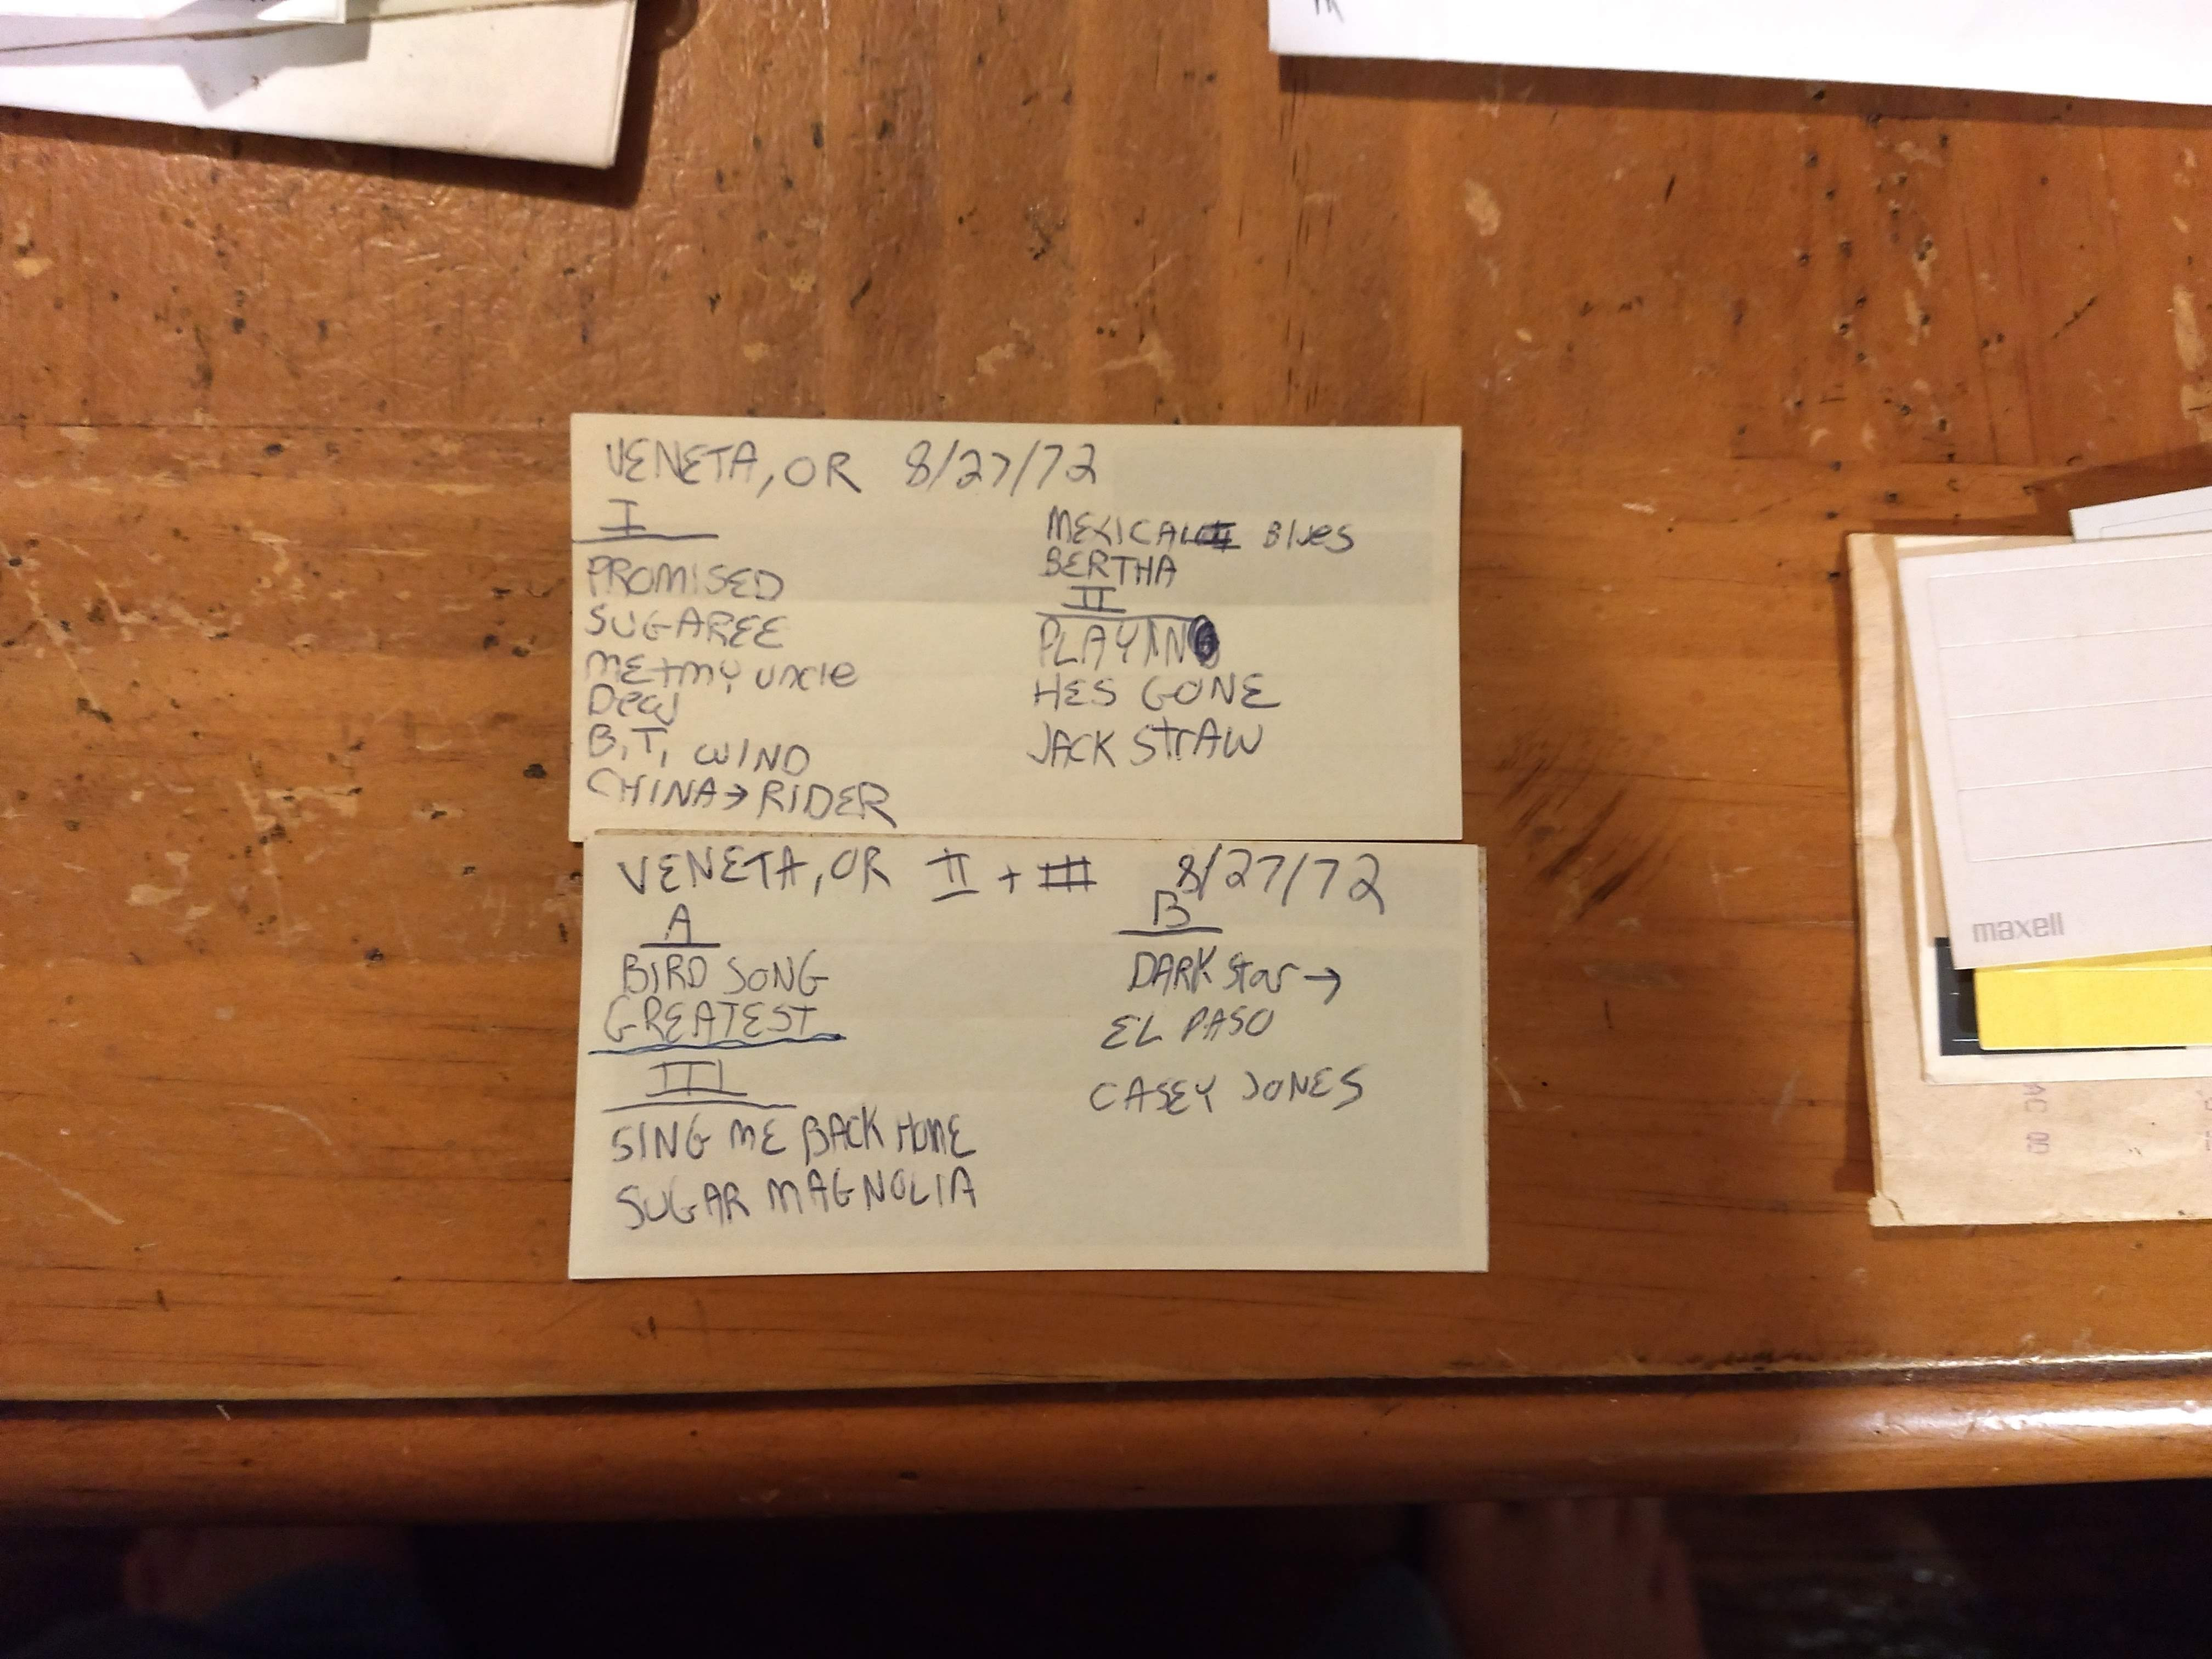 VENETA, OR 8/27/72
I
PROMISED
SUGAREE
ME+MY UNCLE
Dew
B.T. WIND
CHINA→RIDER
MEXICALI Blues
BERTHA
II
PLAYING
HES GONE
JACK STRAW
VENETA, OR II + III 8/27/72
A
BIRD SONG
GREATEST
III
SING ME BACK HOME
SUGAR MAGNOLIA
B
DARK Star →
EL PASO
CASEY JONES
maxell